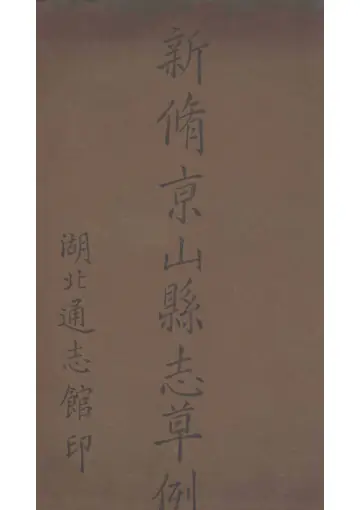 新脩京山縣志草例
湖北通志館印